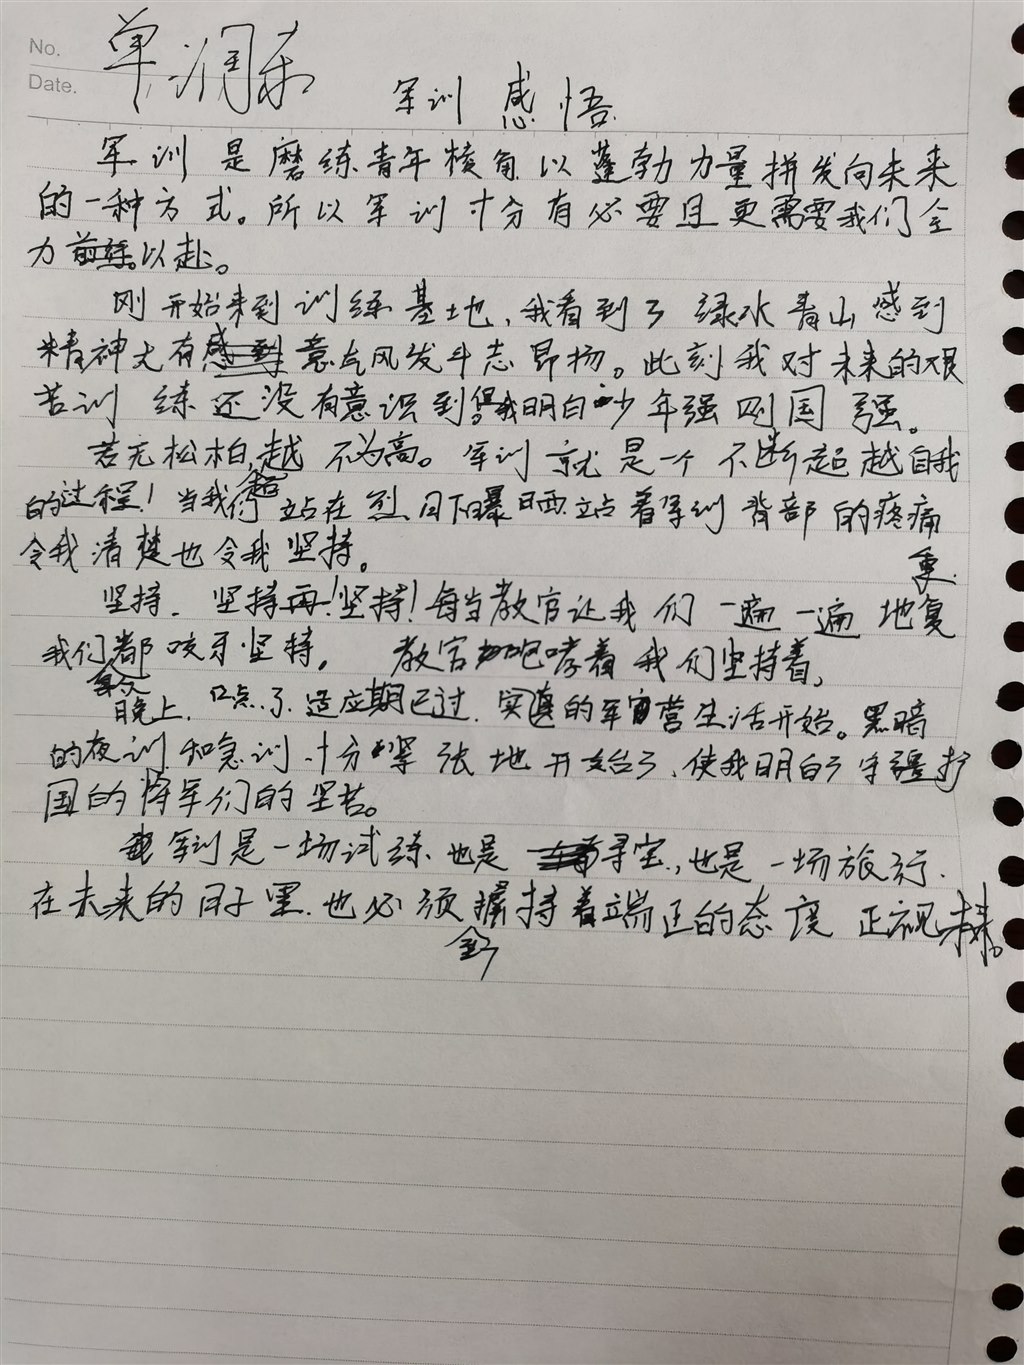 No.
Date.
单润东
军训 感悟
军训是磨练青年棱角以蓬勃力量拼发向未来
的一种方式。所以军训十分有必要且更需要我们全
力以赴。
刚开始来到训练基地,我看到了绿水青山感到
精神尤有意气风发斗志昂扬。此刻我对未来的艰
苦训练还没有意识到但我明白少年强则国强。
若无松柏,越不为高。军训就是一个不断超越自我
的过程!当我们站在烈日下曝晒站着军训背部的疼痛
令我清楚也令我坚持。
坚持.坚持再坚持!每当教官让我们一遍一遍地复
我们都咬牙坚持。教官咆哮着我们坚持着,
晚上.口点了.适应期已过.实真的军营生活开始。黑暗
的夜训和急训十分紧张地开始了,使我明白了守疆护
国的将军们的坚苦。
军训是一场试练.也是寻宝,也是一场旅行.
在未来的日子里.也必须持着端正的态度正视未来。